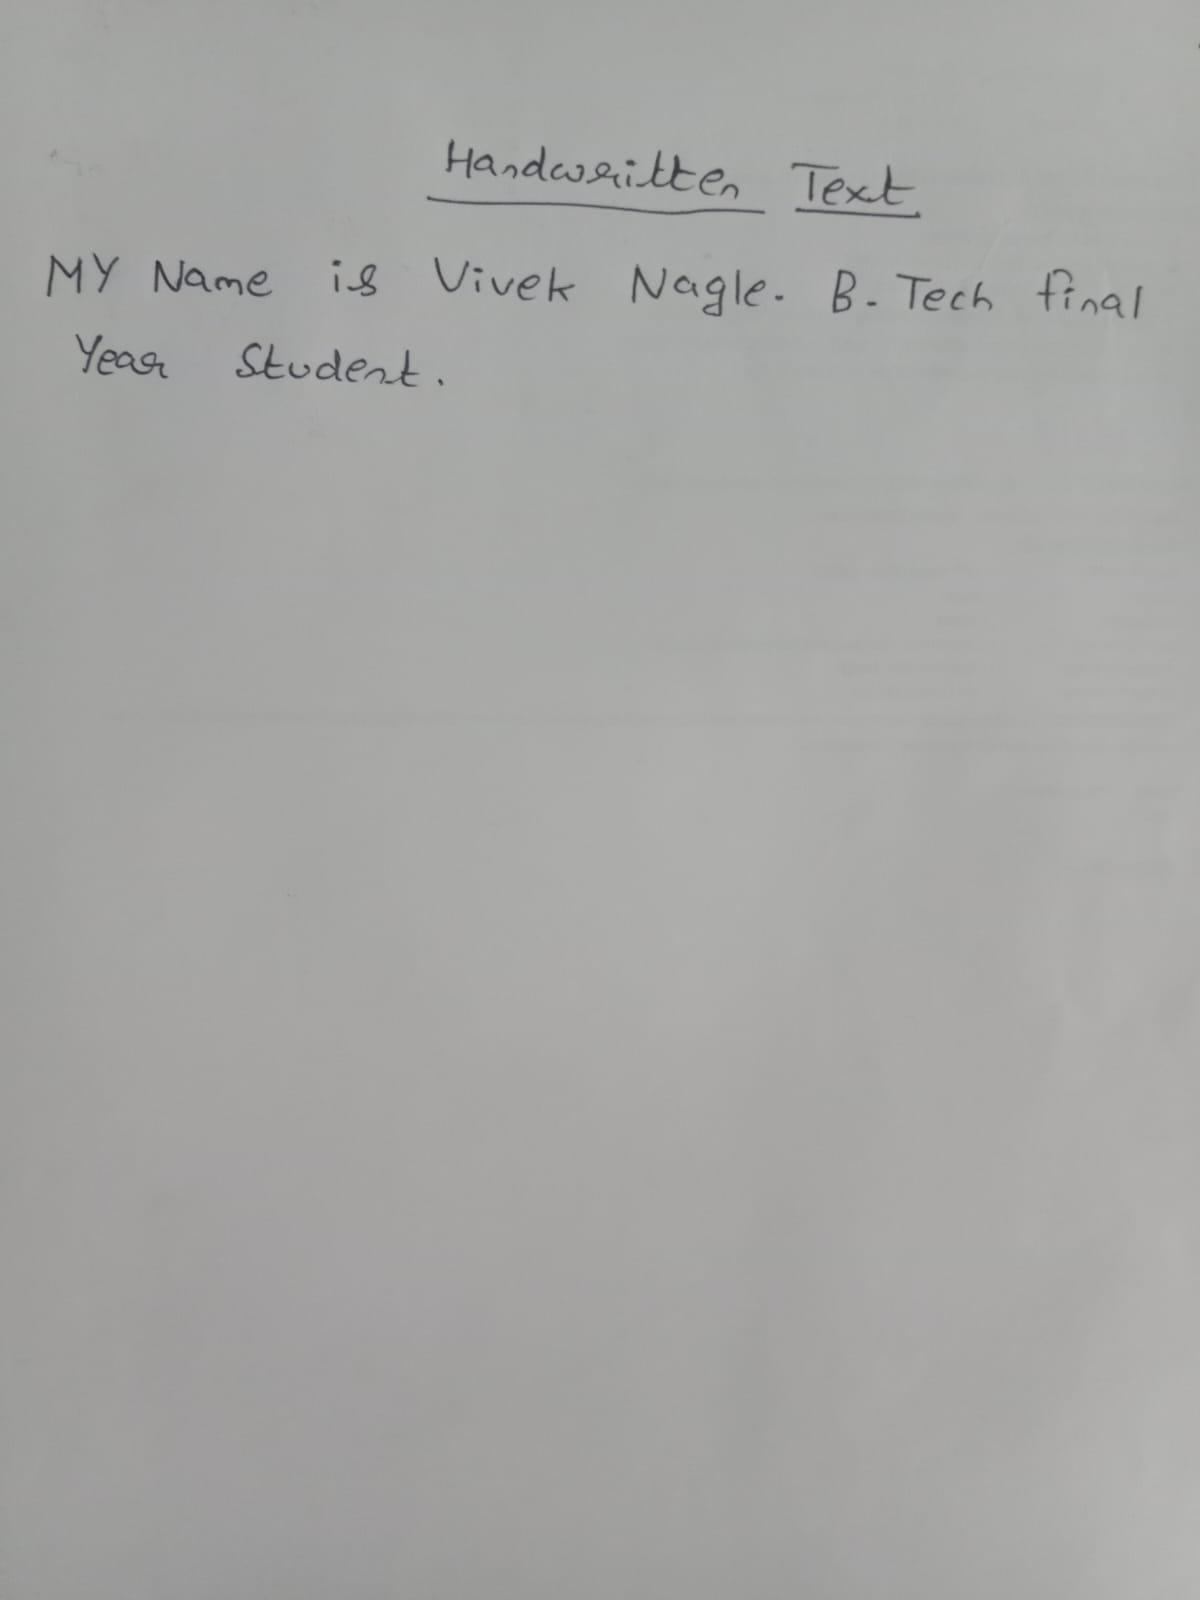 Handwritten Text
MY Name is Vivek Nagle. B. Tech final
Year Student.